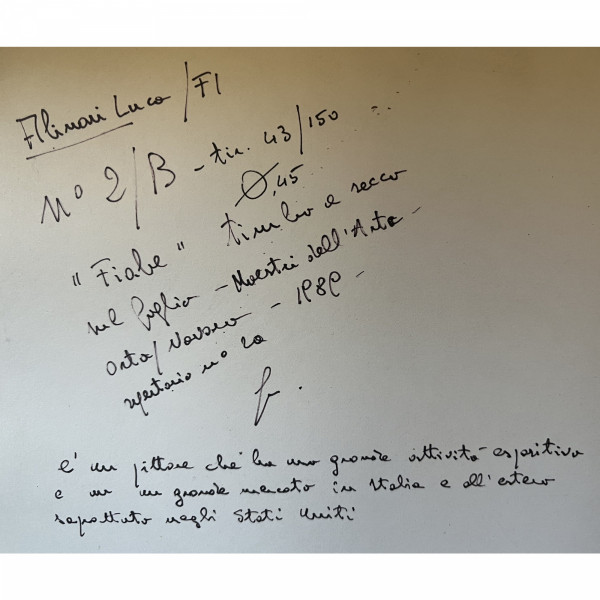 Alinari Luca / FI
N° 2/B - tir. 43/150
Ø,45
"Fiabe" timbro a secco
sul foglio - Maestri dell'Arte -
Orta/Novara - 1989 -
repertorio n° 20
E' un pittore che ha una grande attività espositiva
e un grande mercato in Italia e all'estero
soprattutto negli Stati Uniti